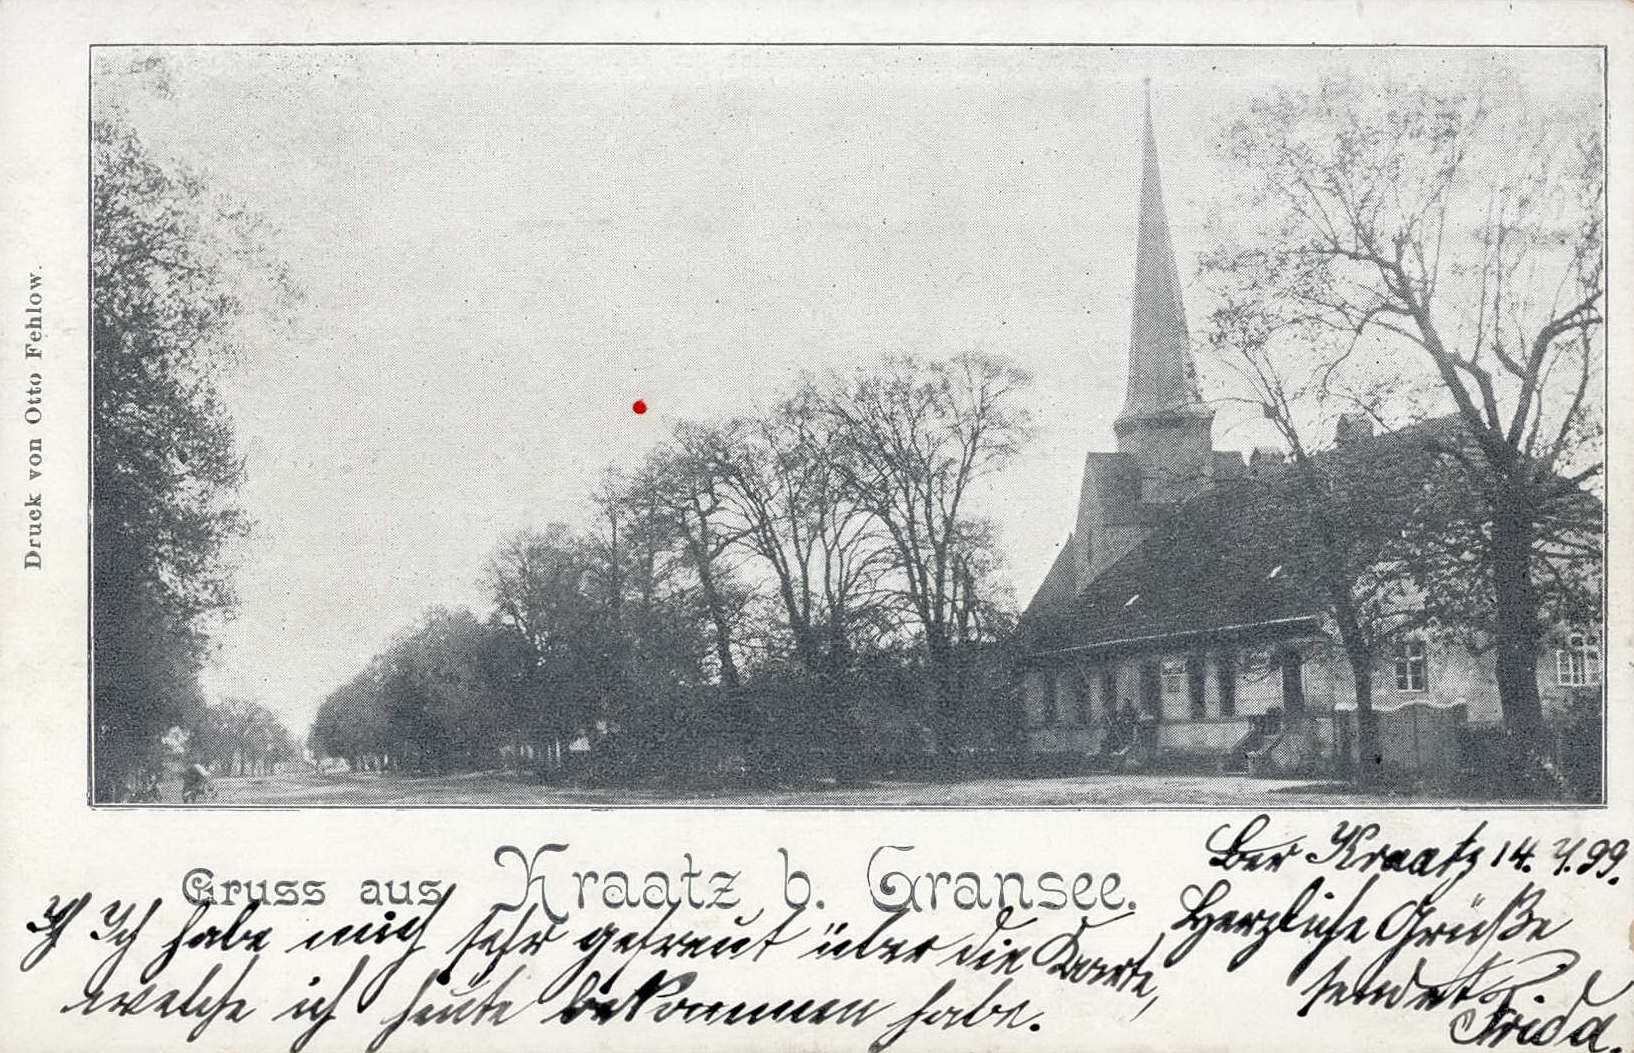 Druck von Otto Fehlow.
Gruss aus Kraatz b. Gransee.
Kraatz 14. 99.
Ich habe mich sehr gefreut über die Karte,
welche ich heute bekommen habe.
Herzliche Grüße
sendet
Frida.